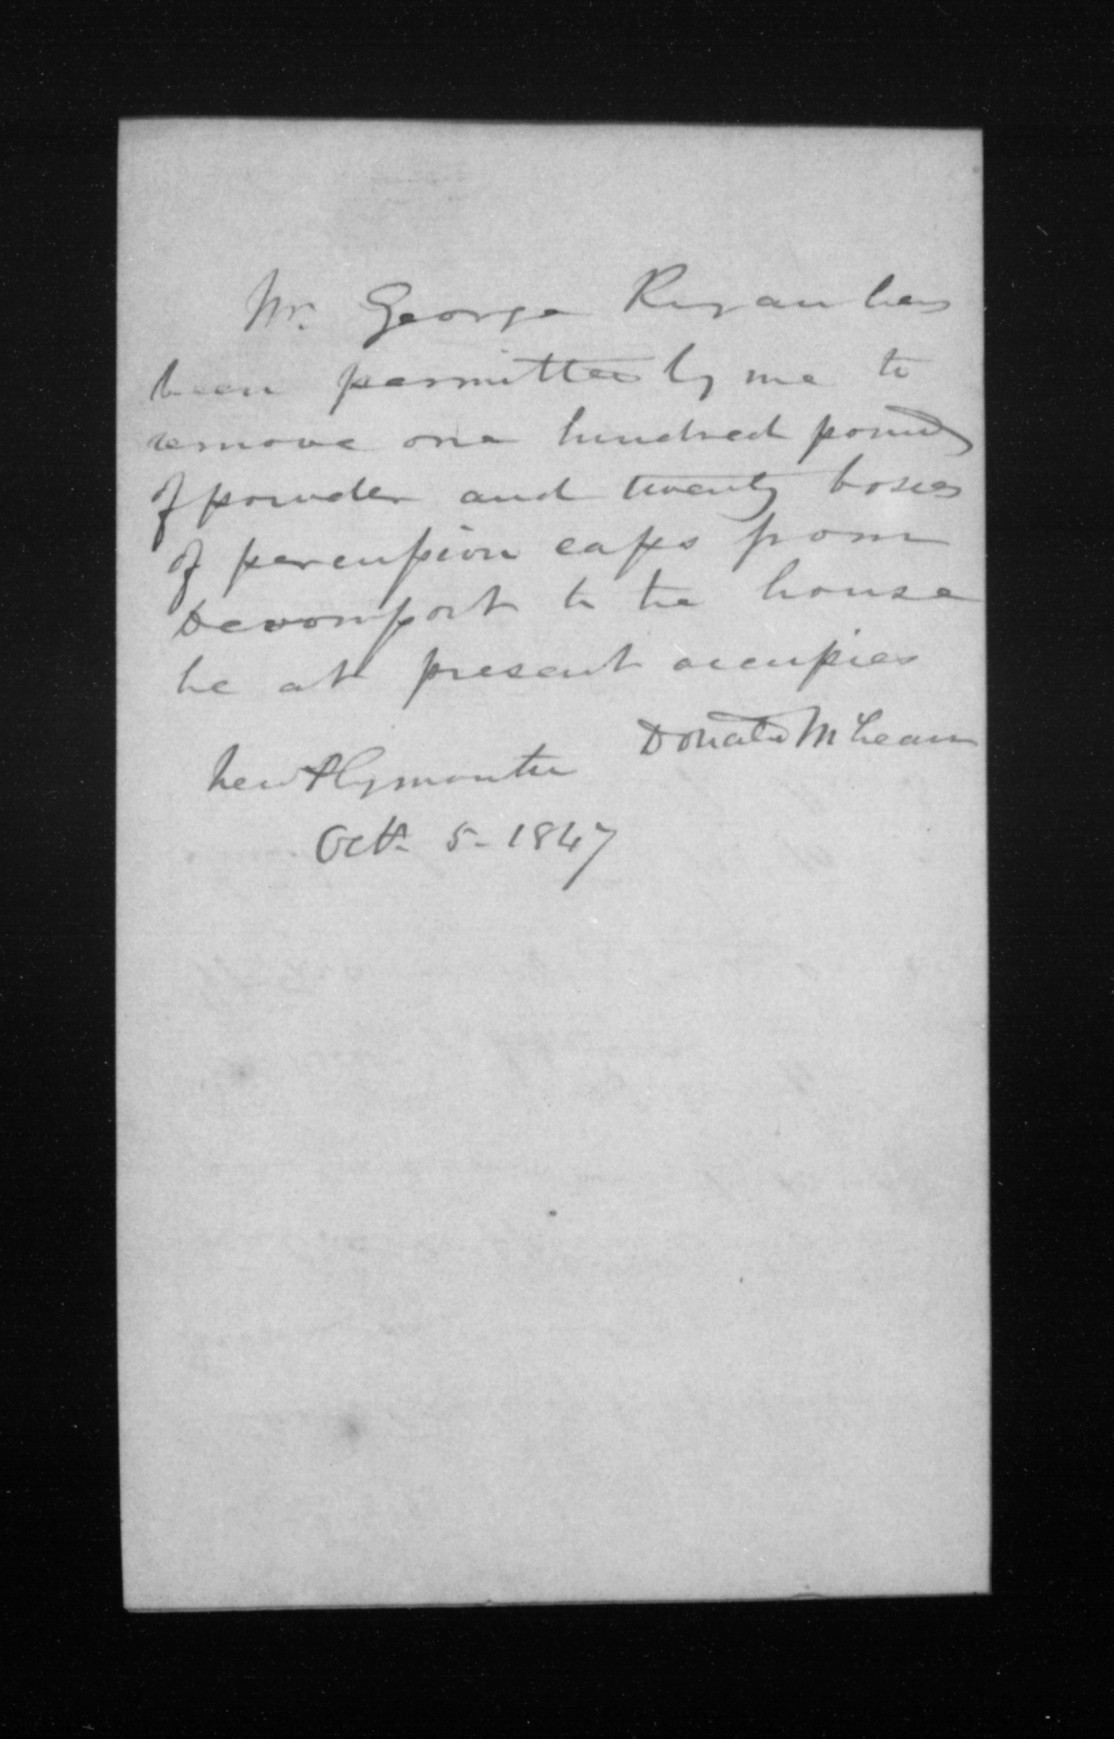 Mr. George Ryan has
been permitted by me to
remove one hundred pounds
of powder and twenty boxes
of percussion caps from
Devonport to the house
he at present occupies
Donald McLean
New Plymouth
Oct. 5 - 1847